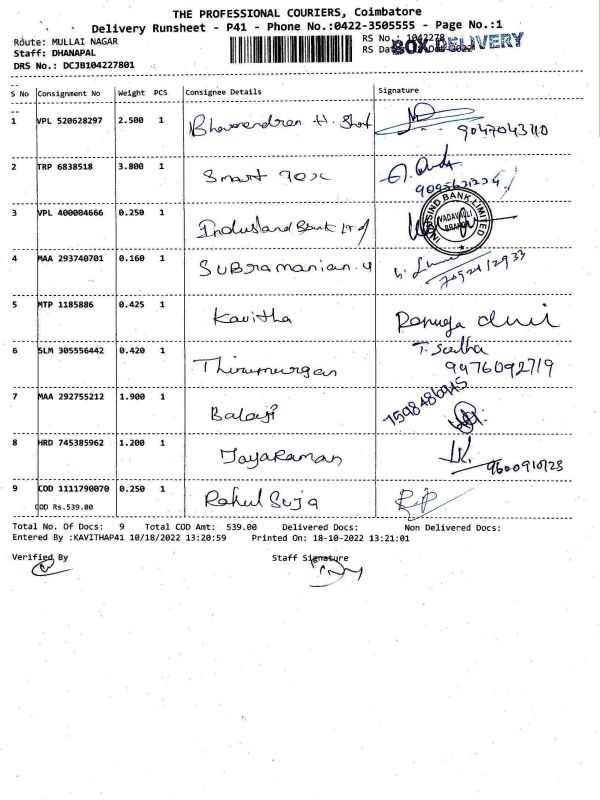 THE PROFESSIONAL COURIERS, Coimbatore
Delivery Runsheet - P41 - Phone No.:0422-3505555 - Page No.:1
Route: MULLAI NAGAR
RS No.: 1042278
Staff: DHANAPAL
RS Da
BOX DELIVERY
DRS No.: DCJB104227801
S No Consignment No Weight PCS Consignee Details Signature
1 VPL 520628297 2.500 1 H.
2 TRP 6838518 3.800 1 Smart
3 VPL 400004666 0.250 1 Indusland Bank LTd
INDUSIND BANK LIMITED
VADAVALLI
BRANCH
4 MAA 293740701 0.160 1 Subramanian.
5 MTP 1185886 0.425 1 Kavitha
6 SLM 305556442 0.420 1 Thirumurgan
9476092719
7 MAA 292755212 1.900 1 Balaji
8 HRD 745385962 1.200 1 Jayaraman
9 COD 1111790070 0.250 1 Rahul Suja
COD Rs.539.00
Total No. Of Docs: 9 Total COD Amt: 539.00 Delivered Docs: Non Delivered Docs:
Entered By :KAVITHAP41 10/18/2022 13:20:59 Printed On: 18-10-2022 13:21:01
Verified By Staff Signature